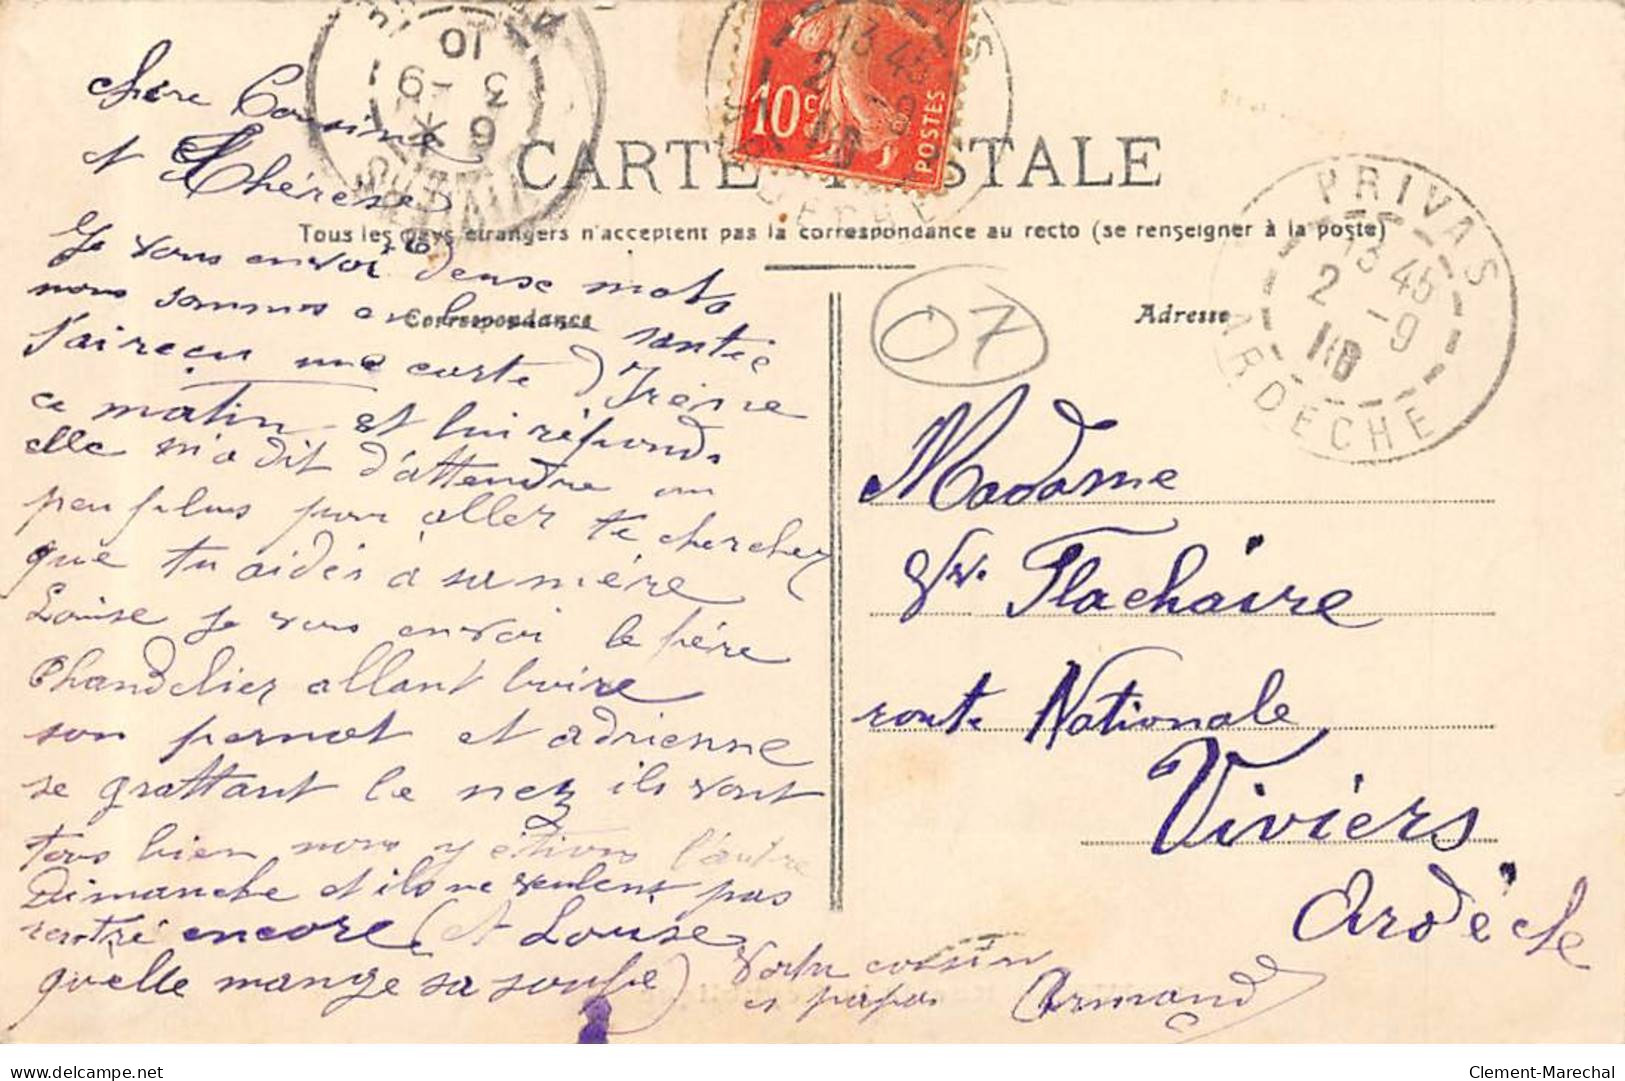 CARTE POSTALE
Tous les pays étrangers n'acceptent pas la correspondance au recto (se renseigner à la poste)
Correspondance
Adresse
10c
POSTES
PRIVAS
13 45
2 -9
10
ARDECHE
6 *
3 -9
10
07
Chère Cousine
et Thérèse
Je vous envoi deuse mots
nous sommes en bonne santée
J'ai reçu une carte d'Irénne
ce matin et lui réponds
elle m'a dit d'attendre un
peu plus pour aller te chercher
que tu aidés a sa mère
Louise je vous envoi le père
Chandelier allant boire
son pernot et adrienne
se grattant le nez ils vont
tous bien nous y étions l'autre
Dimanche et ils ne veulent pas
rentré encore (et Louise
quelle mange sa soupe)
Votre cousin
et papa
Armand
Madame
Vve. Flachaire
route Nationale
Viviérs
Ardèche
Clement-Marechal